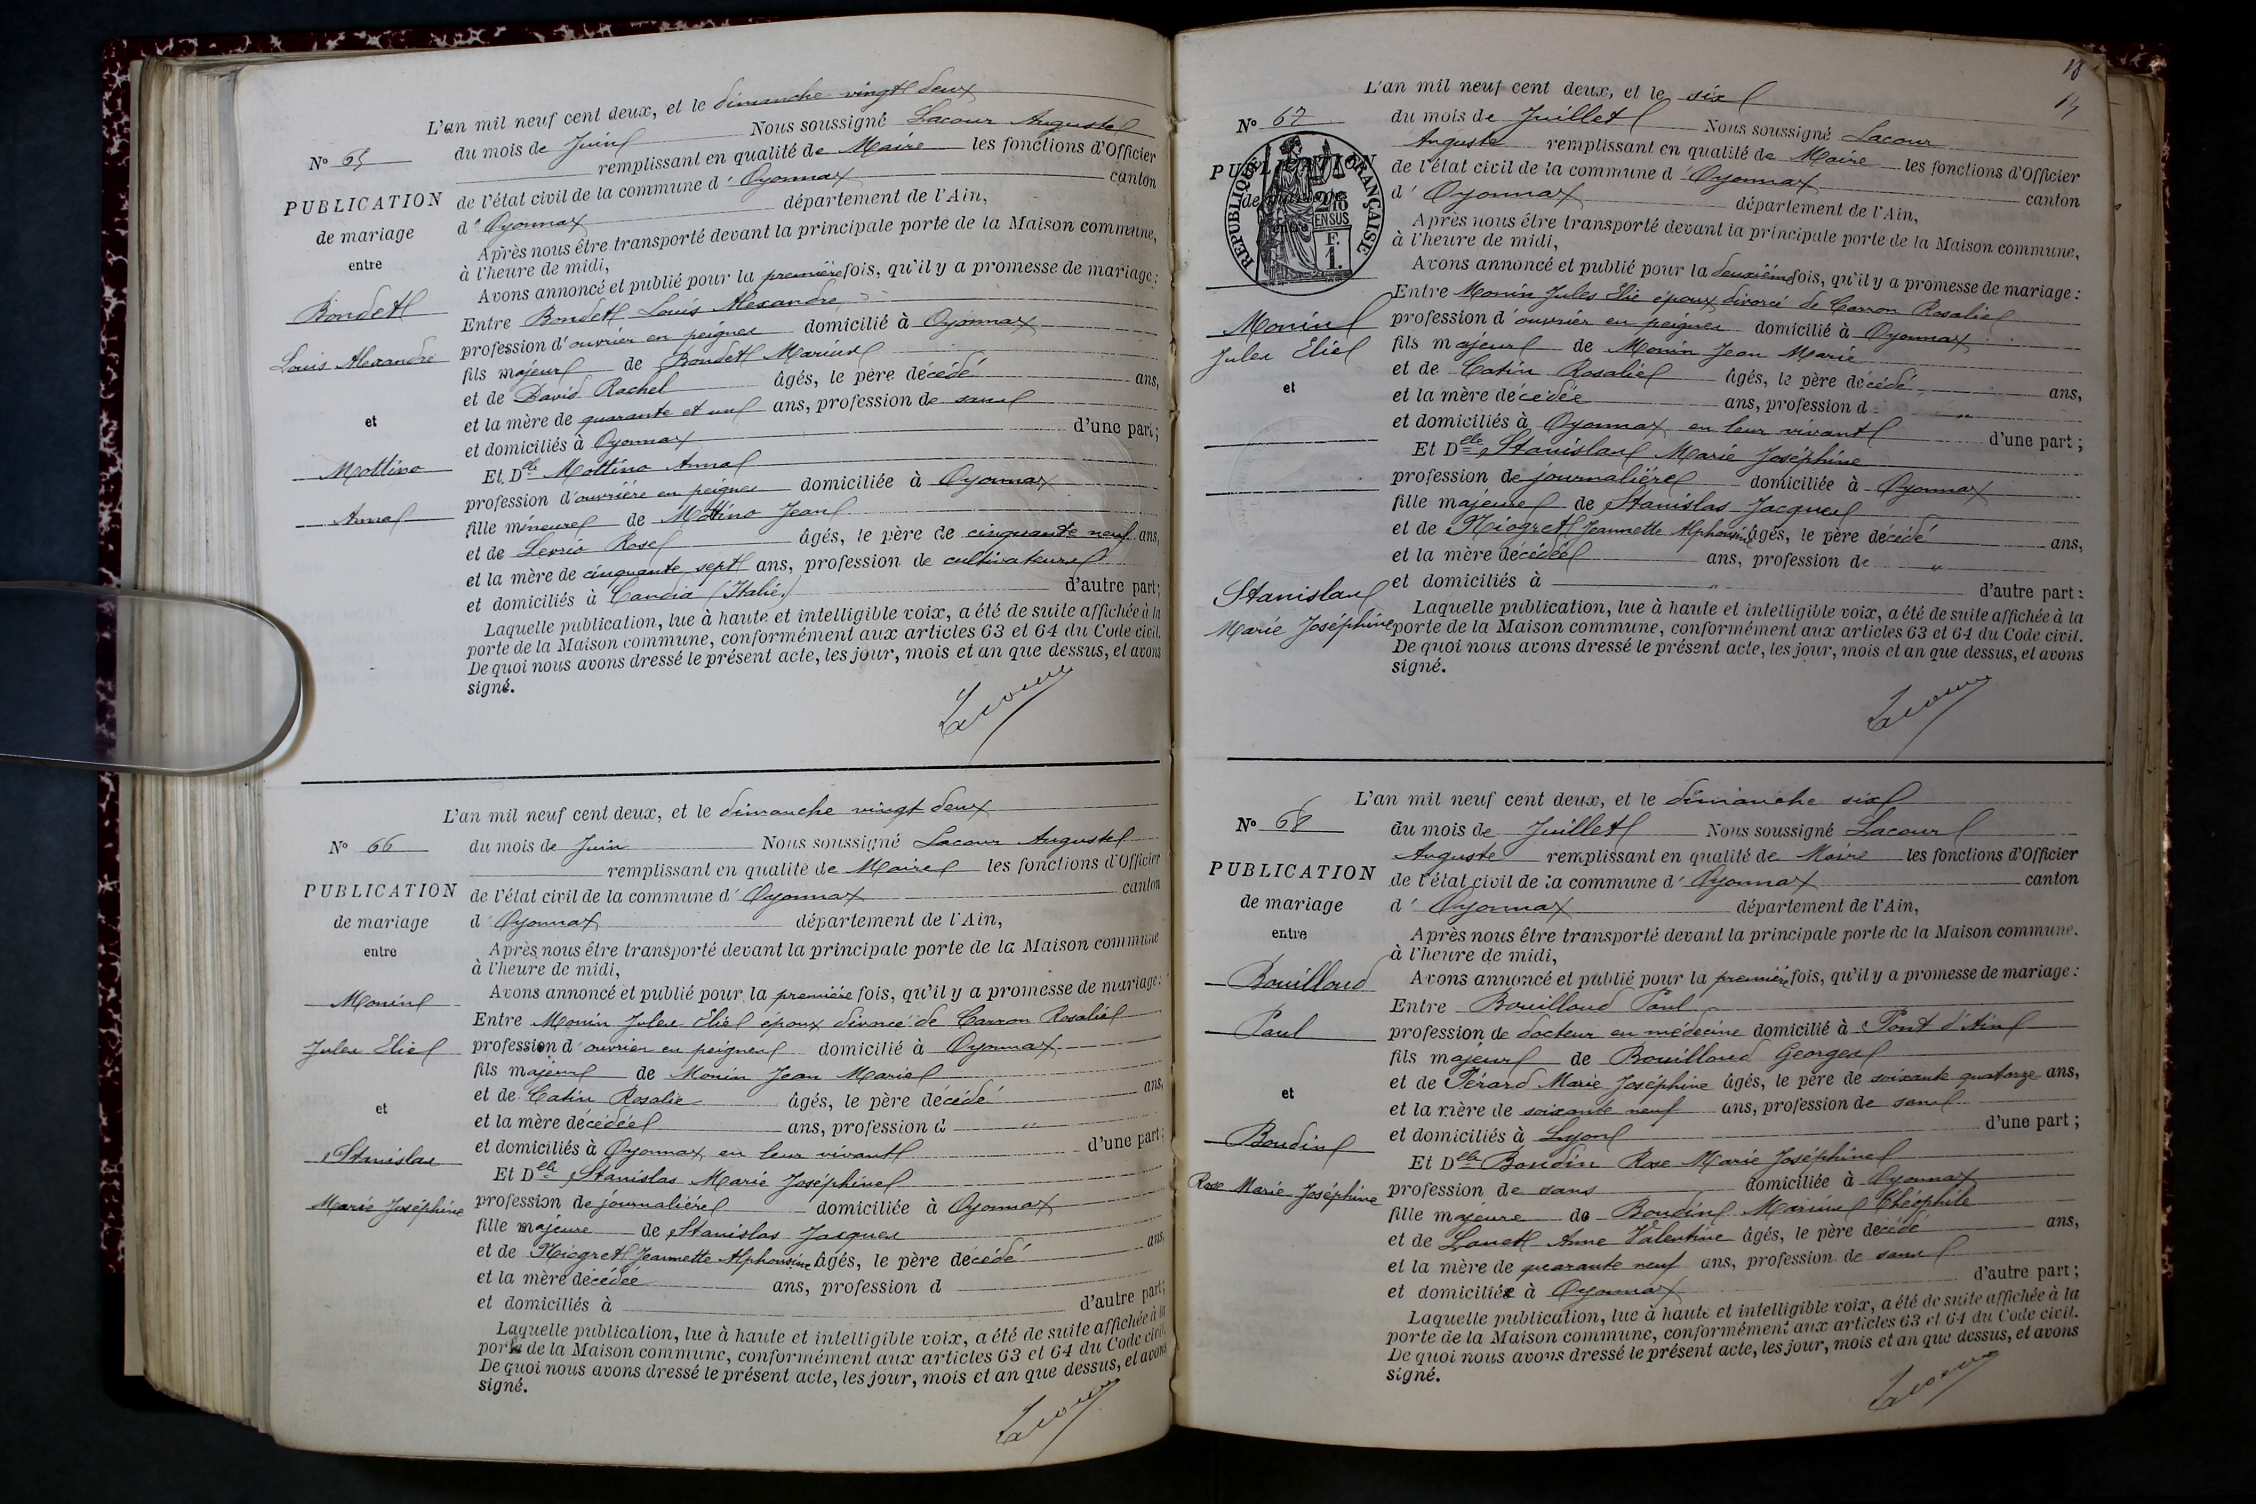 L'an mil neuf cent deux, et le dimanche vingt deux
N° 65
du mois de Juin Nous soussigné Lacour Auguste
remplissant en qualité de Maire les fonctions d'Officier
PUBLICATION
de mariage
entre
Bondet
Louis Alexandre
et
Mottino
Anna
de l'état civil de la commune d'Oyonnax canton
d'Oyonnax département de l'Ain,
Après nous être transporté devant la principale porte de la Maison commune,
à l'heure de midi,
Avons annoncé et publié pour la première fois, qu'il y a promesse de mariage :
Entre Bondet Louis Alexandre
profession d'ouvrier en peignes domicilié à Oyonnax
fils majeur de Bondet Marius
et de David Rachel âgés, le père décédé ans,
et la mère de quarante et un ans, profession de sans
et domiciliés à Oyonnax d'une part ;
Et Delle Mottino Anna
profession d'ouvrière en peignes domiciliée à Oyonnax
fille mineure de Mottino Jean
et de Rose âgés, le père de cinquante neuf ans,
et la mère de cinquante sept ans, profession de cultivateurs
et domiciliés à Candia (Italie) d'autre part ;
Laquelle publication, lue à haute et intelligible voix, a été de suite affichée à la
porte de la Maison commune, conformément aux articles 63 et 64 du Code civil.
De quoi nous avons dressé le présent acte, les jour, mois et an que dessus, et avons
signé.
Lacour
L'an mil neuf cent deux, et le dimanche vingt deux
N° 66
du mois de Juin Nous soussigné Lacour Auguste
remplissant en qualité de Maire les fonctions d'Officier
PUBLICATION
de mariage
entre
Monin
Jules Elie
et
Stanislas
Marie Joséphine
de l'état civil de la commune d'Oyonnax canton
d'Oyonnax département de l'Ain,
Après nous être transporté devant la principale porte de la Maison commune
à l'heure de midi,
Avons annoncé et publié pour la première fois, qu'il y a promesse de mariage :
Entre Monin Jules Elie époux divorcé de Carron Rosalie
profession d'ouvrier en peignes domicilié à Oyonnax
fils majeur de Monin Jean Marie
et de Catin Rosalie âgés, le père décédé ans,
et la mère décédée ans, profession d "
et domiciliés à Oyonnax en leur vivant d'une part ;
Et Delle Stanislas Marie Joséphine
profession de journalière domiciliée à Oyonnax
fille majeure de Stanislas Jacques
et de Niogret Jeannette Alphonsine âgés, le père décédé ans,
et la mère décédée ans, profession d
et domiciliés à d'autre part ;
Laquelle publication, lue à haute et intelligible voix, a été de suite affichée à la
porte de la Maison commune, conformément aux articles 63 et 64 du Code civil.
De quoi nous avons dressé le présent acte, les jour, mois et an que dessus, et avons
signé.
Lacour
18
L'an mil neuf cent deux, et le six
N° 67
du mois de Juillet Nous soussigné Lacour
Auguste remplissant en qualité de Maire les fonctions d'Officier
PUBLICATION
de mariage
entre
RÉPUBLIQUE FRANÇAISE
2/10
EN SUS
F.
1.
Monin
Jules Elie
et
Stanislas
Marie Joséphine
de l'état civil de la commune d'Oyonnax canton
d'Oyonnax département de l'Ain,
Après nous être transporté devant la principale porte de la Maison commune,
à l'heure de midi,
Avons annoncé et publié pour la deuxième fois, qu'il y a promesse de mariage :
Entre Monin Jules Elie époux divorcé de Carron Rosalie
profession d'ouvrier en peignes domicilié à Oyonnax
fils majeur de Monin Jean Marie
et de Catin Rosalie âgés, le père décédé ans,
et la mère décédée ans, profession d "
et domiciliés à Oyonnax en leur vivant d'une part ;
Et Delle Stanislas Marie Joséphine
profession de journalière domiciliée à Oyonnax
fille majeure de Stanislas Jacques
et de Niogret Jeannette Alphonsine âgés, le père décédé ans,
et la mère décédée ans, profession de "
et domiciliés à " d'autre part :
Laquelle publication, lue à haute et intelligible voix, a été de suite affichée à la
porte de la Maison commune, conformément aux articles 63 et 64 du Code civil.
De quoi nous avons dressé le présent acte, les jour, mois et an que dessus, et avons
signé.
Lacour
L'an mil neuf cent deux, et le dimanche six
N° 68
du mois de Juillet Nous soussigné Lacour
Auguste remplissant en qualité de Maire les fonctions d'Officier
PUBLICATION
de mariage
entre
Bouilloud
Paul
et
Boudin
Rose Marie Joséphine
de l'état civil de la commune d'Oyonnax canton
d'Oyonnax département de l'Ain,
Après nous être transporté devant la principale porte de la Maison commune.
à l'heure de midi,
Avons annoncé et publié pour la première fois, qu'il y a promesse de mariage :
Entre Bouilloud Paul
profession de docteur en médecine domicilié à Pont d'Ain
fils majeur de Bouilloud Georges
et de Férard Marie Joséphine âgés, le père de soixante quatorze ans,
et la mère de soixante neuf ans, profession de sans
et domiciliés à Lyon d'une part ;
Et Delle Boudin Rose Marie Joséphine
profession de sans domiciliée à Oyonnax
fille majeure de Boudin Marius Théophile
et de Anne Valentine âgés, le père décédé ans,
et la mère de quarante neuf ans, profession de sans
et domiciliée à Oyonnax d'autre part ;
Laquelle publication, lue à haute et intelligible voix, a été de suite affichée à la
porte de la Maison commune, conformément aux articles 63 et 64 du Code civil.
De quoi nous avons dressé le présent acte, les jour, mois et an que dessus, et avons
signé.
Lacour